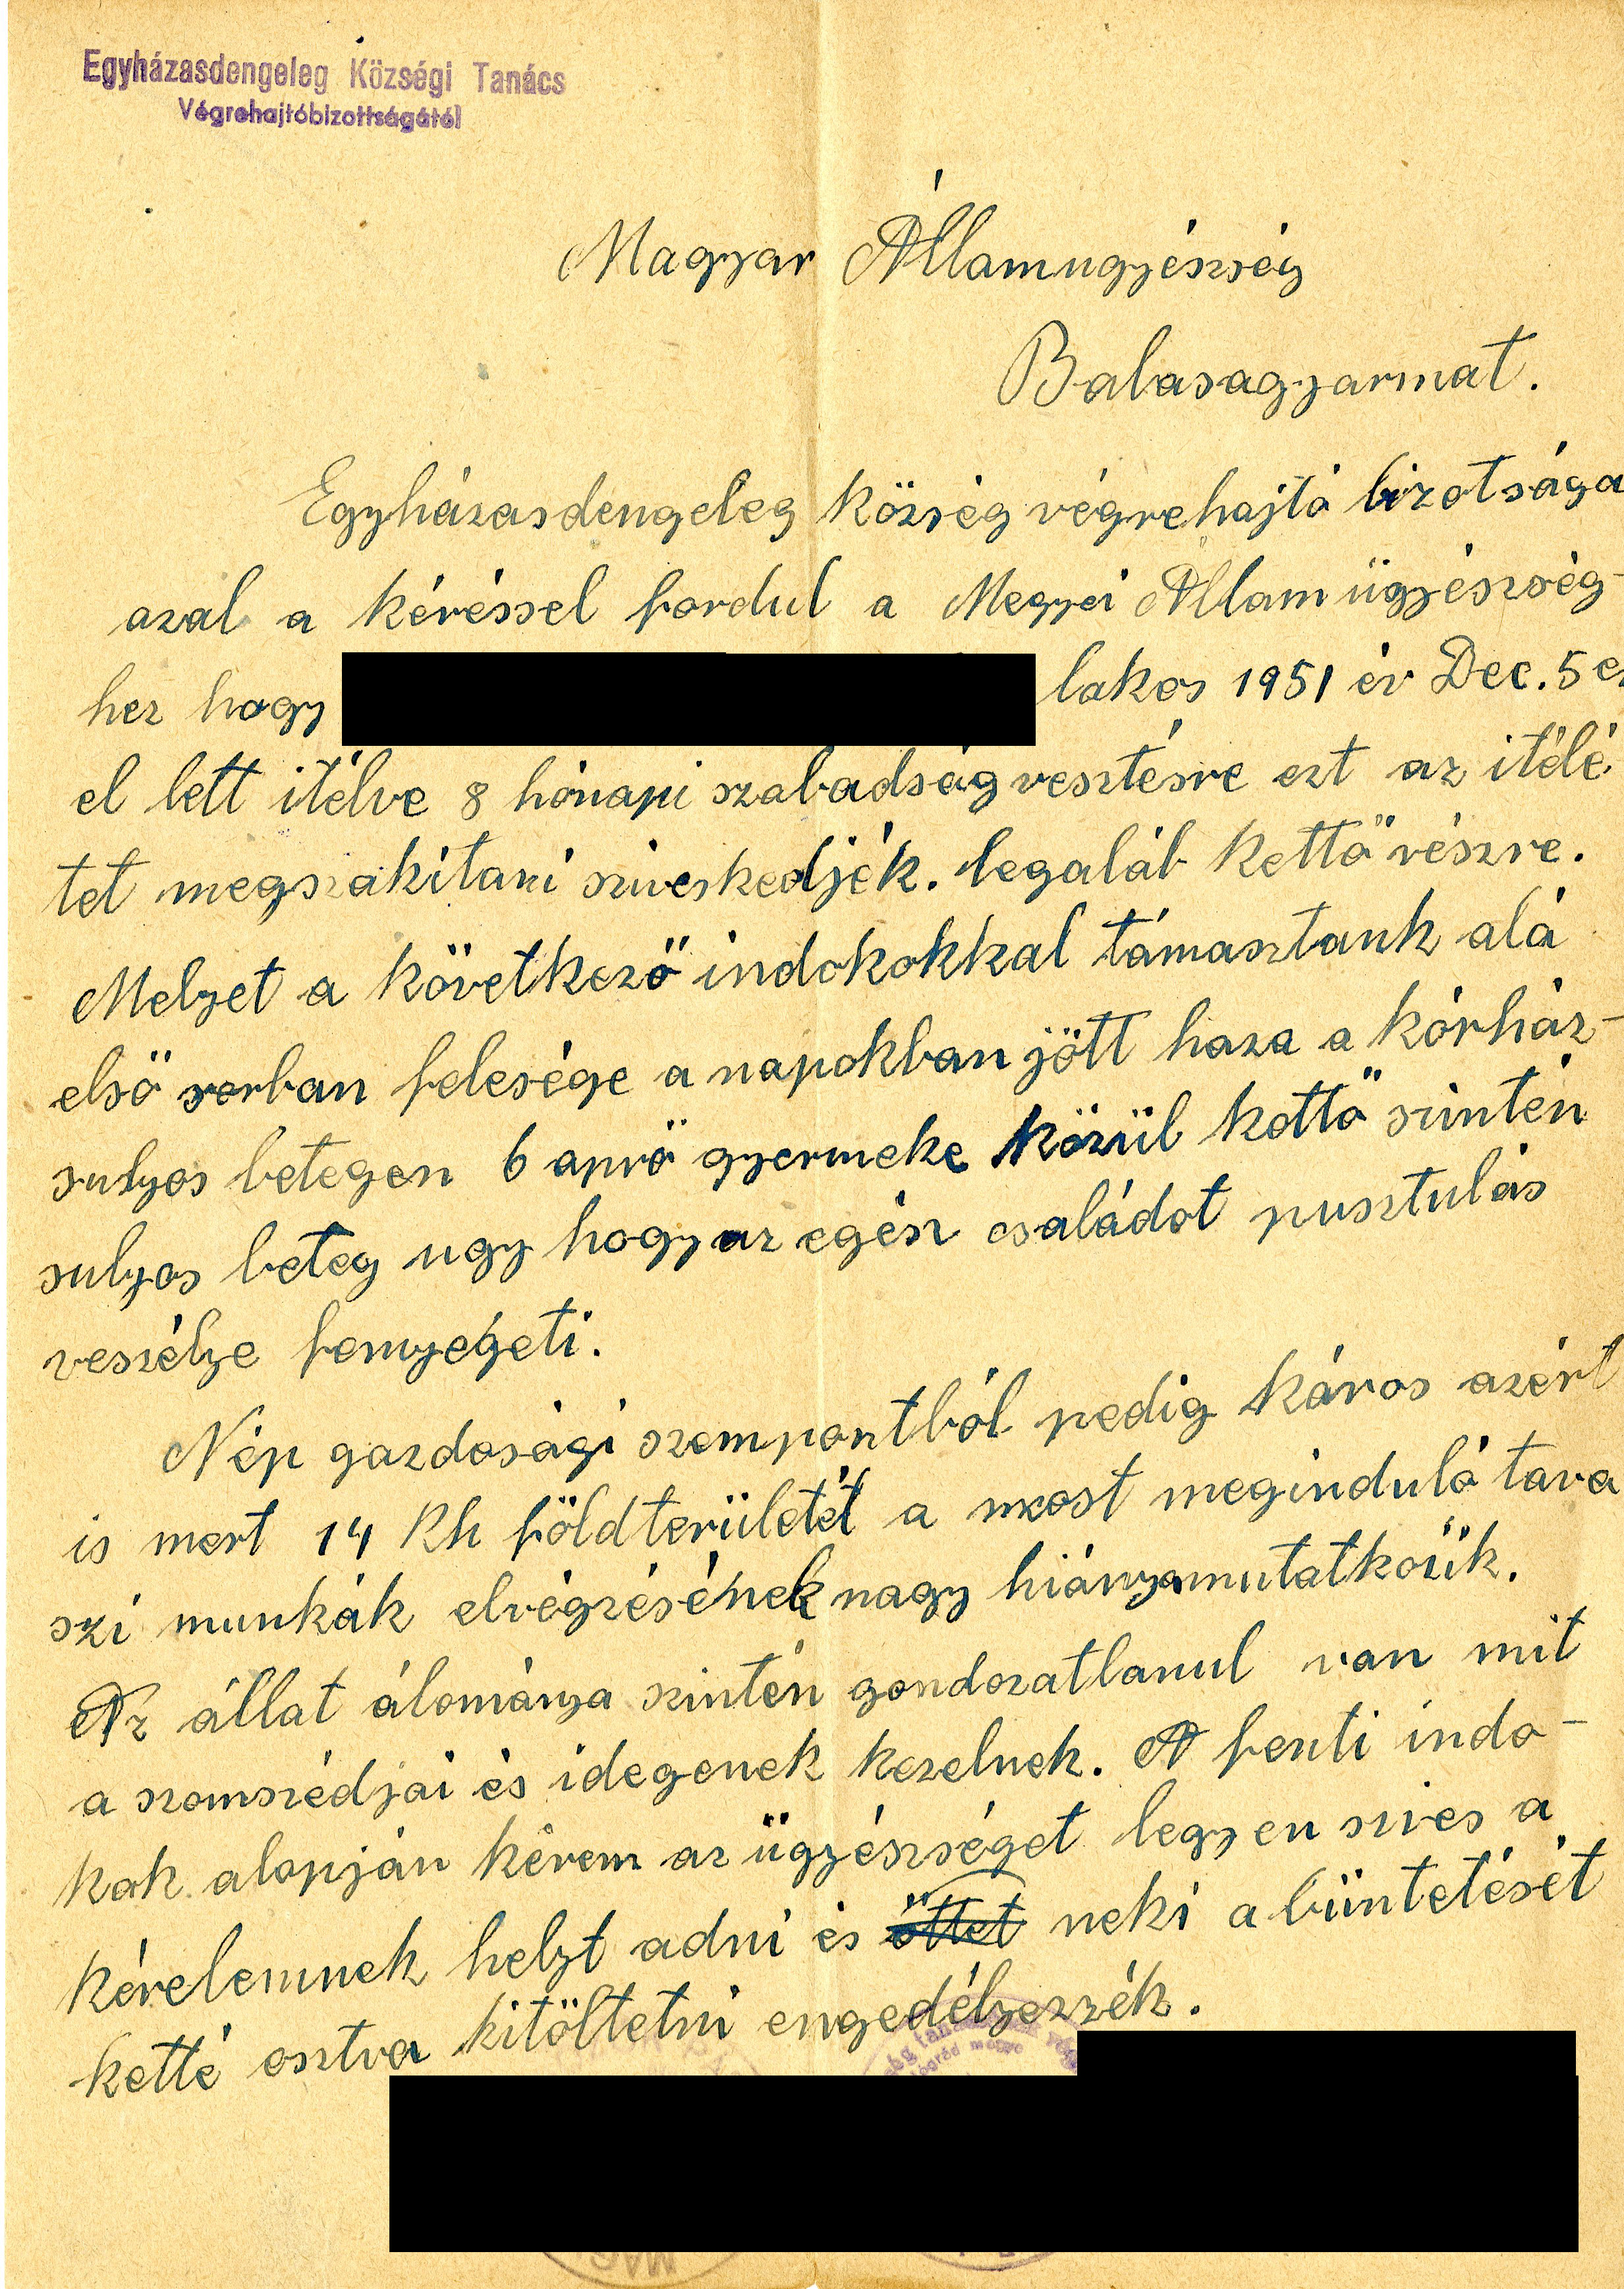 Egyházasdengeleg Községi Tanács
Végrehajtóbizottságától
Magyar Államugyészség
Balasagyarmat.
Egyházasdengeleg község végrehajtó bizotsága
azal a kéréssel fordul a Megyei Államügyészség-
hez hogy lakos 1951 év Dec. 5 
el lett itélve 8 hónapi szabadság vesztésre ezt az itélé
tet megszakitani sziveskedjék. legaláb kettő részre.
Melyet a következő indokokkal támasztank alá
elsö sorban felesége a napokban jött haza a kórház-
sulyos betegen 6 apró gyermeke közül kettő szintén
sulyos beteg ugy hogy az egész családot pusztulás
veszélye fenyegeti.
Nép gazdosági szempontból pedig káros azért
is mert 14 Kh földterületét a most meginduló tava
szi munkák elvégzésének nagy hiánya mutatkozik.
Az állat álománya szintén gondozatlanul van mit
a szomszédjai és idegenek kezelnek. A fenti indo-
kok alapján kérem az ügyészséget legyen szives a
kérelemnek helyt adni és őttet neki a büntetését
ketté osztva kitöltetni engedélyezzék.